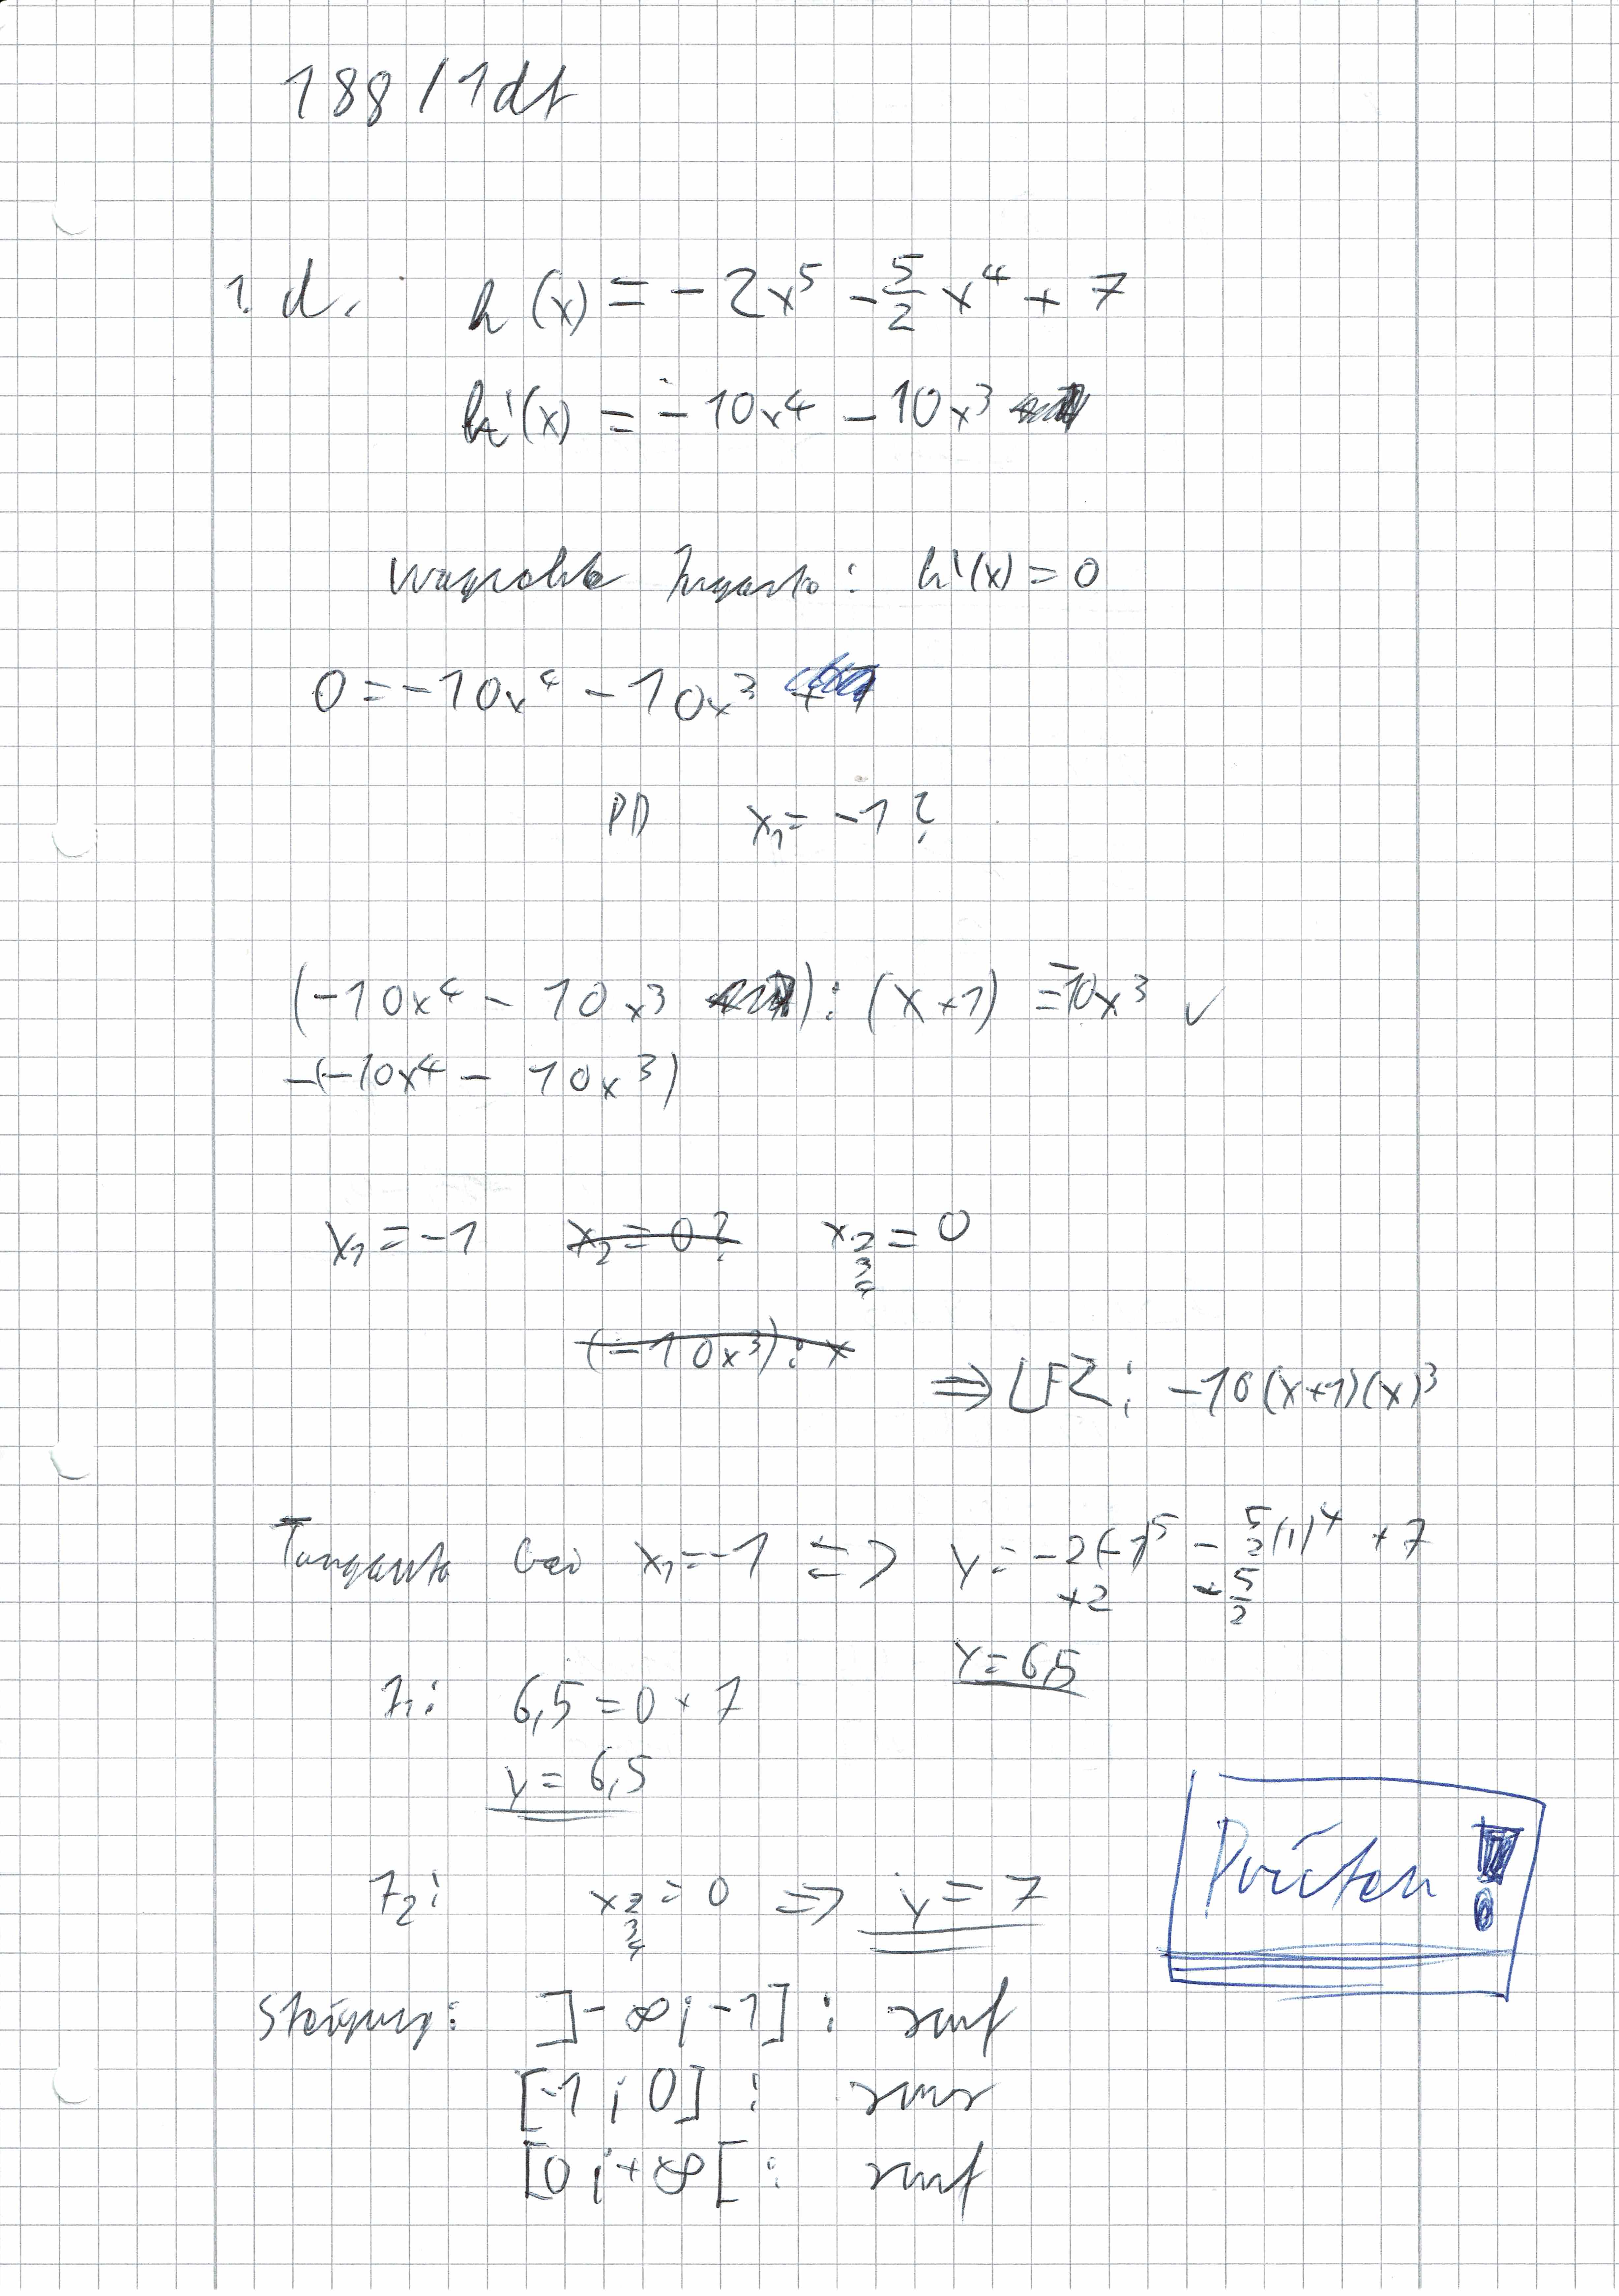 188 / 1df
1. d. h(x) = -2x⁵ - 5/2 x⁴ + 7
h'(x) = -10x⁴ - 10x³
waagrechte Tangente: h'(x) = 0
0 = -10x⁴ - 10x³
PD x₁ = -1 ?
(-10x⁴ - 10x³ ) : (x+1) = -10x³ ✓
-(-10x⁴ - 10x³)
x₁ = -1 x₂ = 0 ? x₂ ₃ ₄ = 0
(-10x³) : x
⇒ LFZ: -10(x+1)(x)³
Tangente bei x₁ = -1 ⇒ y = -2(-1)⁵ - 5/2(1)⁴ + 7
+2 - 5/2
y = 6,5
T₁: 6,5 = 0 + 7
y = 6,5
T₂: x₂ ₃ ₄ = 0 ⇒ y = 7
Prüfen !
Steigung: ]-∞ ; -1] : smf
[-1 ; 0] : sms
[0 ; +∞[ : smf